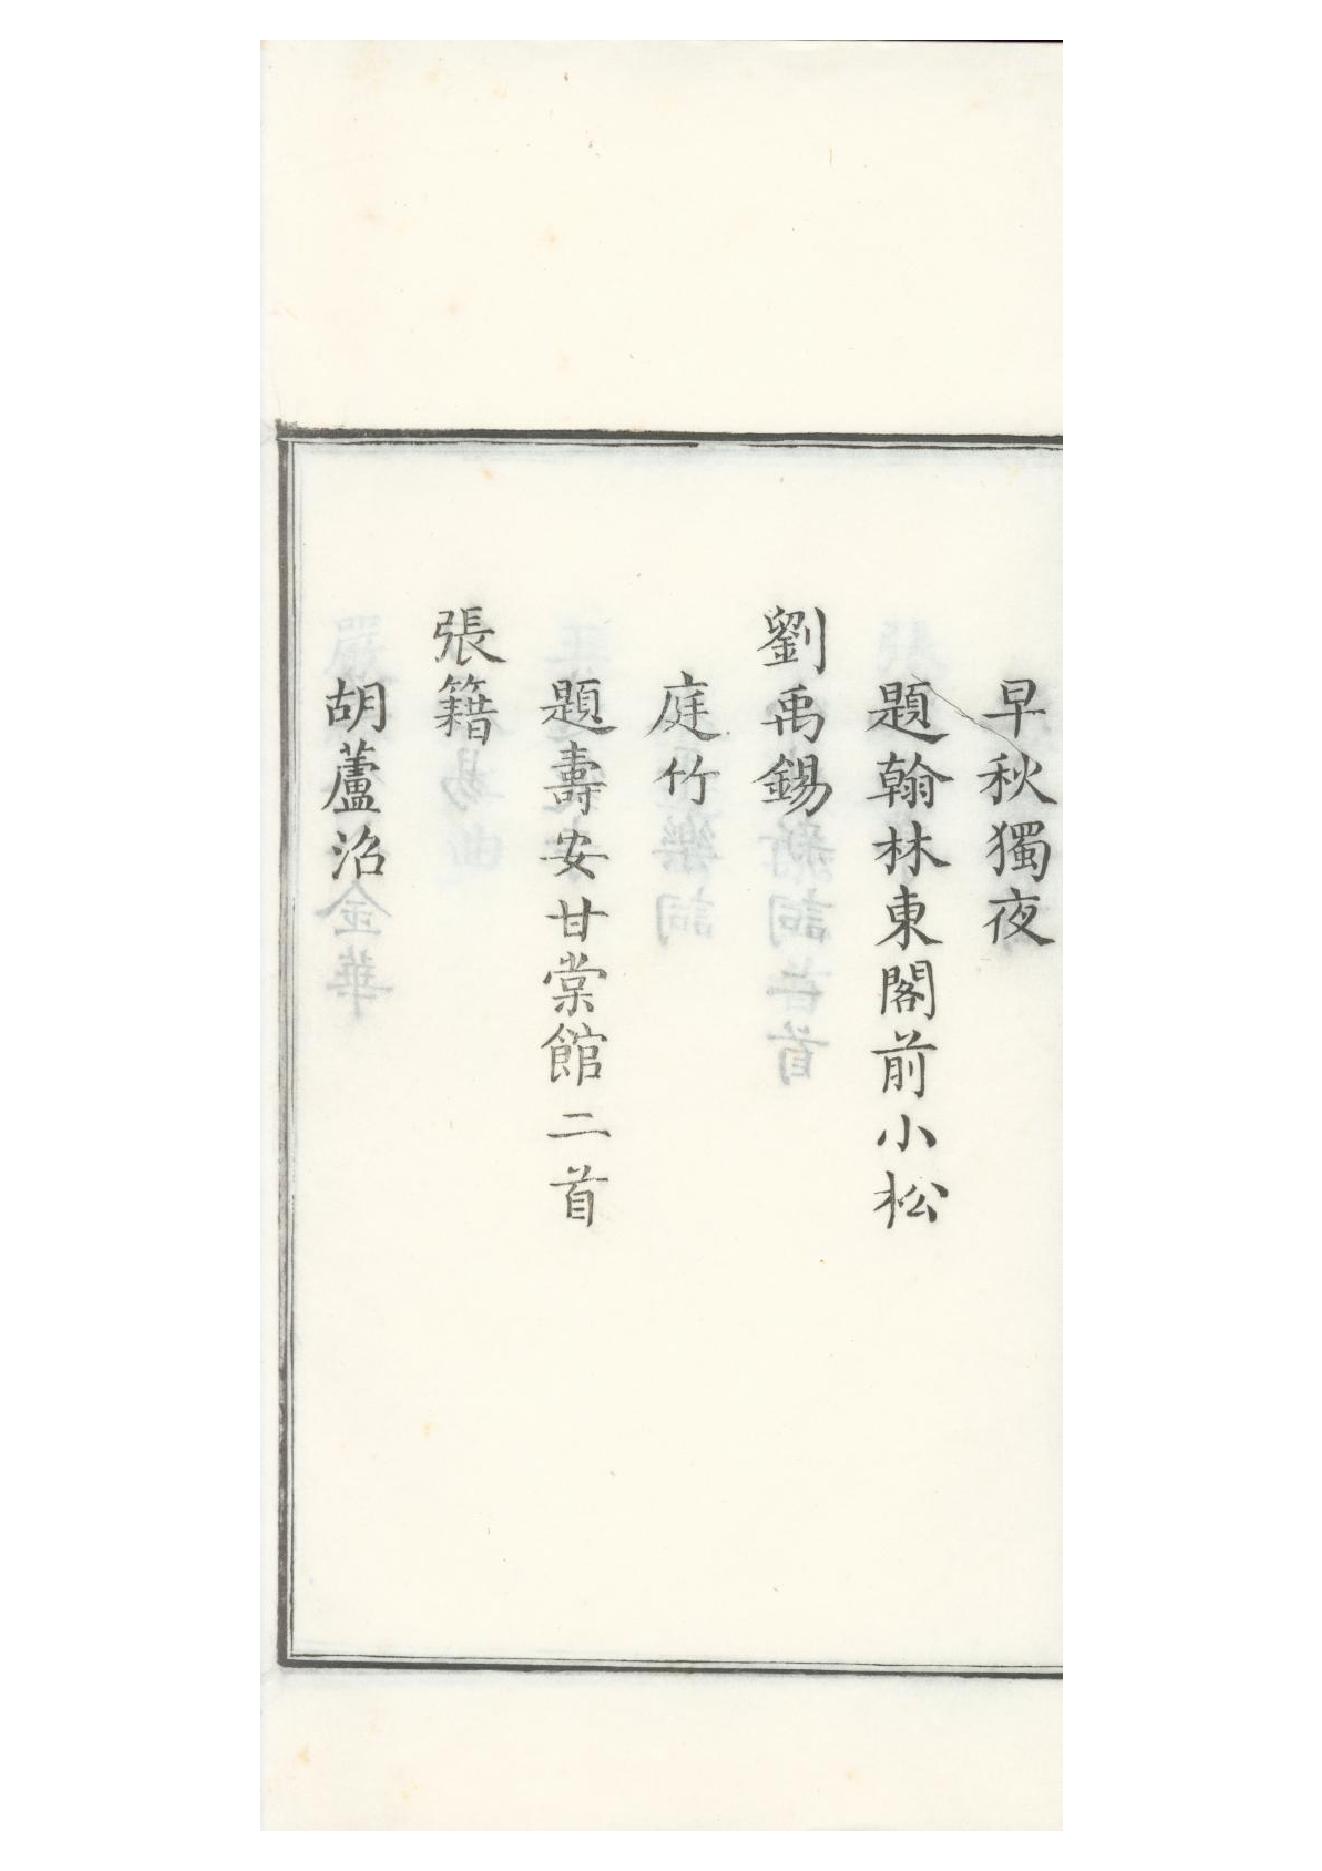 早秋獨夜
題翰林東閣前小松
劉禹錫
庭竹
題壽安甘棠館二首
張籍
胡蘆沼